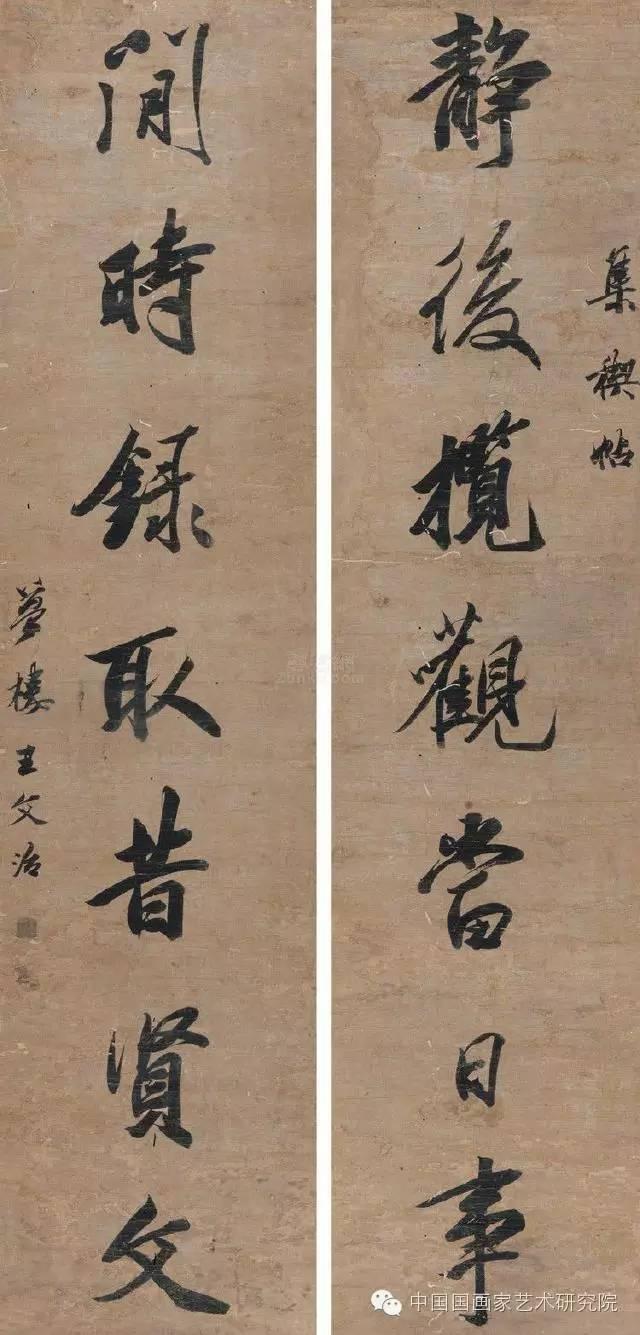 集禊帖
靜後攬觀當日事
閒時録取昔賢文
夢樓王文治
中国国画家艺术研究院